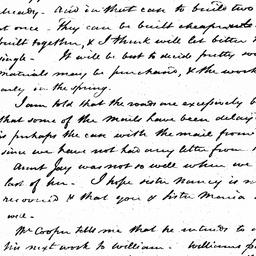 already. And in that case to build two
at once. They can be built cheaper
built together, & I think will let better
single. It will be best to decide pretty
materials may be purchased, & the work
early in the spring.
I am told that the roads are excessively
that some of the mails have been delay
is perhaps the case with the mail from
since we have not had any letter from
Aunt Jay was not so well when we
last of her. I hope sister Nancy is
recovered & that you & Sister Maria
well.
Mr Cooper tells me that he intends to
his next work to William. William's